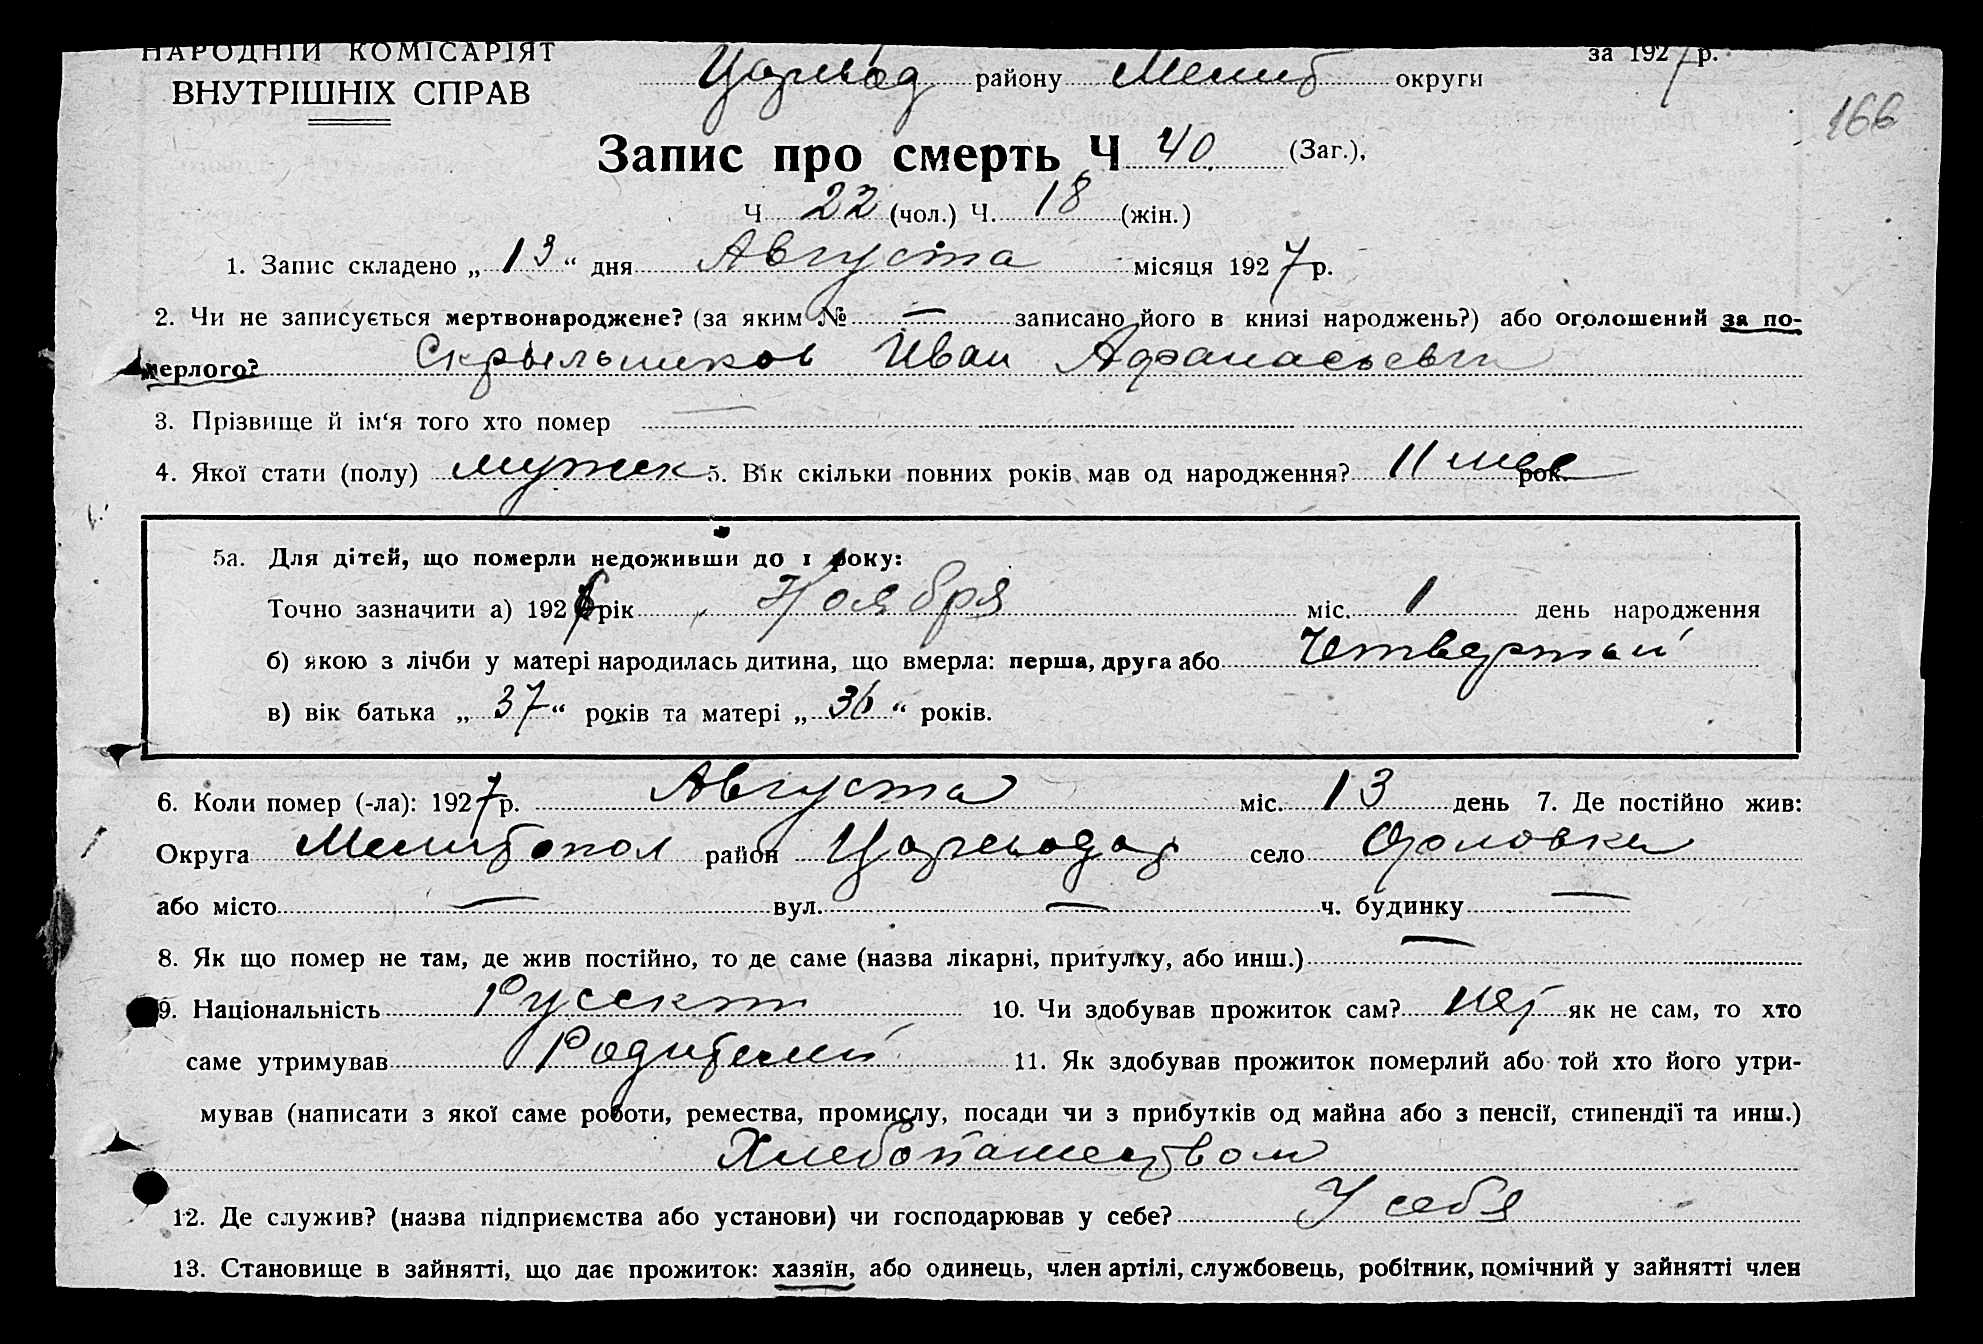 НАРОДНІЙ КОМІСАРІЯТ за 1927 р.
ВНУТРІШНІХ СПРАВ Царевод району Мелит округи
166
Запис про смерть Ч 40 (Заг.),
Ч 22 (чол.) Ч. 18 (жін.)
1. Запис складено „ 13 “ дня Августа місяця 1927 р.
2. Чи не записується мертвонароджене? (за яким № — записано його в книзі народжень?) або оголошений за по-
мерлого? Скрыльников Иван Афанасьевич
3. Прізвище й ім‘я того хто помер —
4. Якої стати (полу) мужск 5. Вік скільки повних років мав од народження? 11 мес рок.
5а. Для дітей, що померли недоживши до 1 року:
Точно зазначити а) 1926 рік Ноября міс. 1 день народження
б) якою з лічби у матері народилась дитина, що вмерла: перша, друга або Четвертый
в) вік батька „ 37 “ років та матері „ 36 “ років.
6. Коли помер (-ла): 1927 р. Августа міс. 13 день 7. Де постійно жив:
Округа Мелитопол район Цареводар село Орловка
або місто — вул. — ч. будинку —
8. Як що помер не там, де жив постійно, то де саме (назва лікарні, притулку, або инш.) —
9. Національність Русск 10. Чи здобував прожиток сам? нет як не сам, то хто
саме утримував Родители 11. Як здобував прожиток померлий або той хто його утри-
мував (написати з якої саме роботи, ремества, промислу, посади чи з прибутків од майна або з пенсії, стипендії та инш.)
Хлебопашеством
12. Де служив? (назва підприємства або установи) чи господарював у себе? У себя
13. Становище в зайнятті, що дає прожиток: хазяїн, або одинець, член артілі, службовець, робітник, помічний у зайнятті член